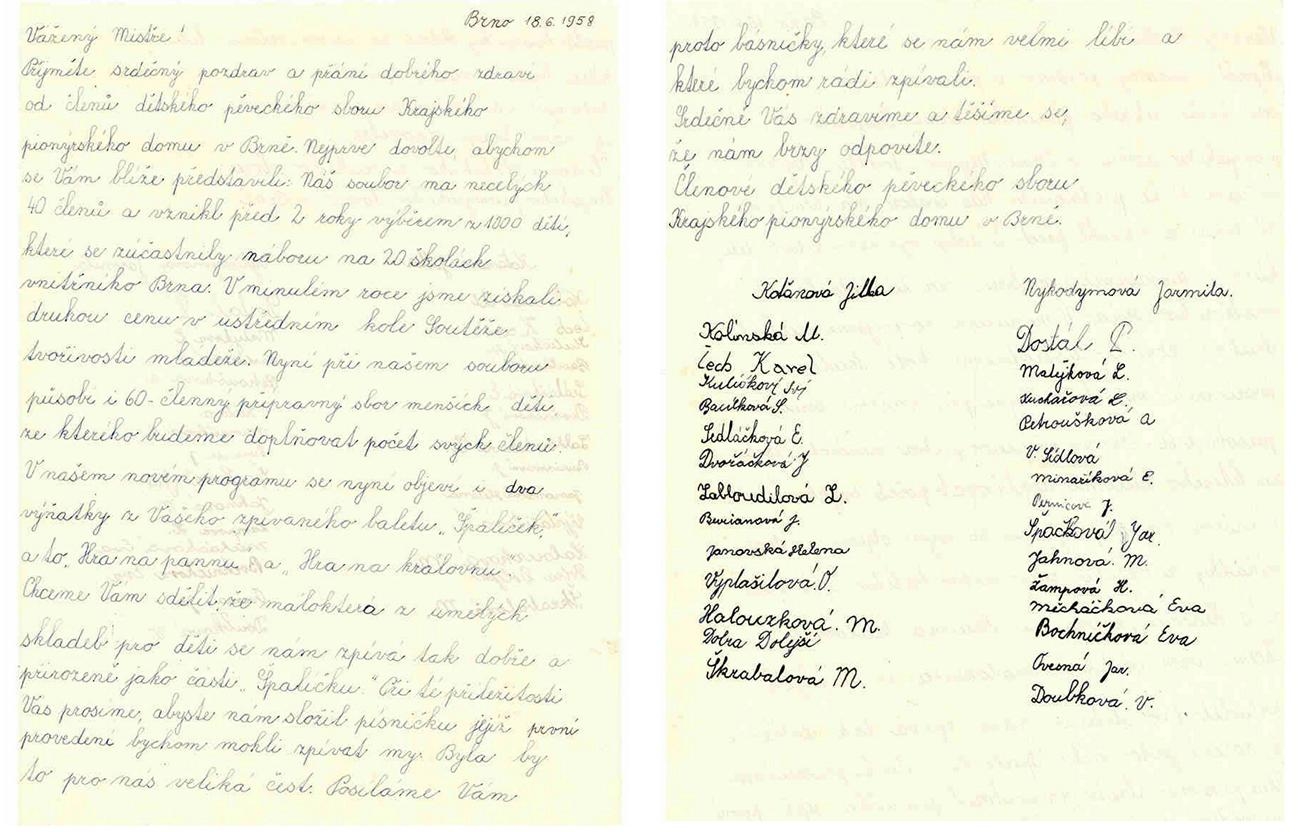 Brno 18.6.1958
Vážený Mistře!
Přijměte srdečný pozdrav a přání dobrého zdraví
od členů dětského pěveckého sboru Krajského
pionýrského domu v Brně. Nejprve dovolte, abychom
se Vám blíže představili: Náš soubor ma necelých
40 členů a vznikl před 2 roky výběrem z 1000 dětí,
které se zúčastnily náboru na 20 školách
vnitřního Brna. V minulém roce jsme získali
druhou cenu v ústředním kole Soutěže
tvořivosti mládeže. Nyní při našem souboru
působí i 60-členný přípravný sbor menších dětí
ze kterého budeme doplňovat počet svých členů.
V našem novém programu se nyní objeví i dva
výňatky z Vašeho zpívaného baletu „Špalíček,“
a to „Hra na pannu“ a „Hra na královnu“.
Chceme Vám sdělit, že málokterá z umělých
skladeb pro děti se nám zpívá tak dobře a
přirozeně jako části „Špalíčku.“ Při té příležitosti
Vás prosíme, abyste nám složil písničku jejíž první
provedení bychom mohli zpívat my. Byla by
to pro nás veliká čest. Posíláme Vám
proto básničky, které se nám velmi líbí a
které bychom rádi zpívali.
Srdečně Vás zdravíme a těšíme se,
že nám brzy odpovíte.
Členové dětského pěveckého sboru
Krajského pionýrského domu v Brně.
Kotanová Jitka
Nykodymová Jarmila.
Kolínská M.
Čech Karel
Bacíková S.
Sedláčková E.
Dvořáčková J
Zabloudilová L.
Burianová J.
Janovská Helena
Vyplašilová O.
Halouzková. M.
Dobra Dolejší
Škrabalová M.
Dostál P.
Matýková L.
Kuchařová H.
Petroušková a
V. Sídlová
Minaříková E.
Pernicova J.
Špačková Jar.
Jahnová. M.
Žampová H.
Měcháčková Eva
Bochníčková Eva
Ovesná Jar.
Doubková. V.